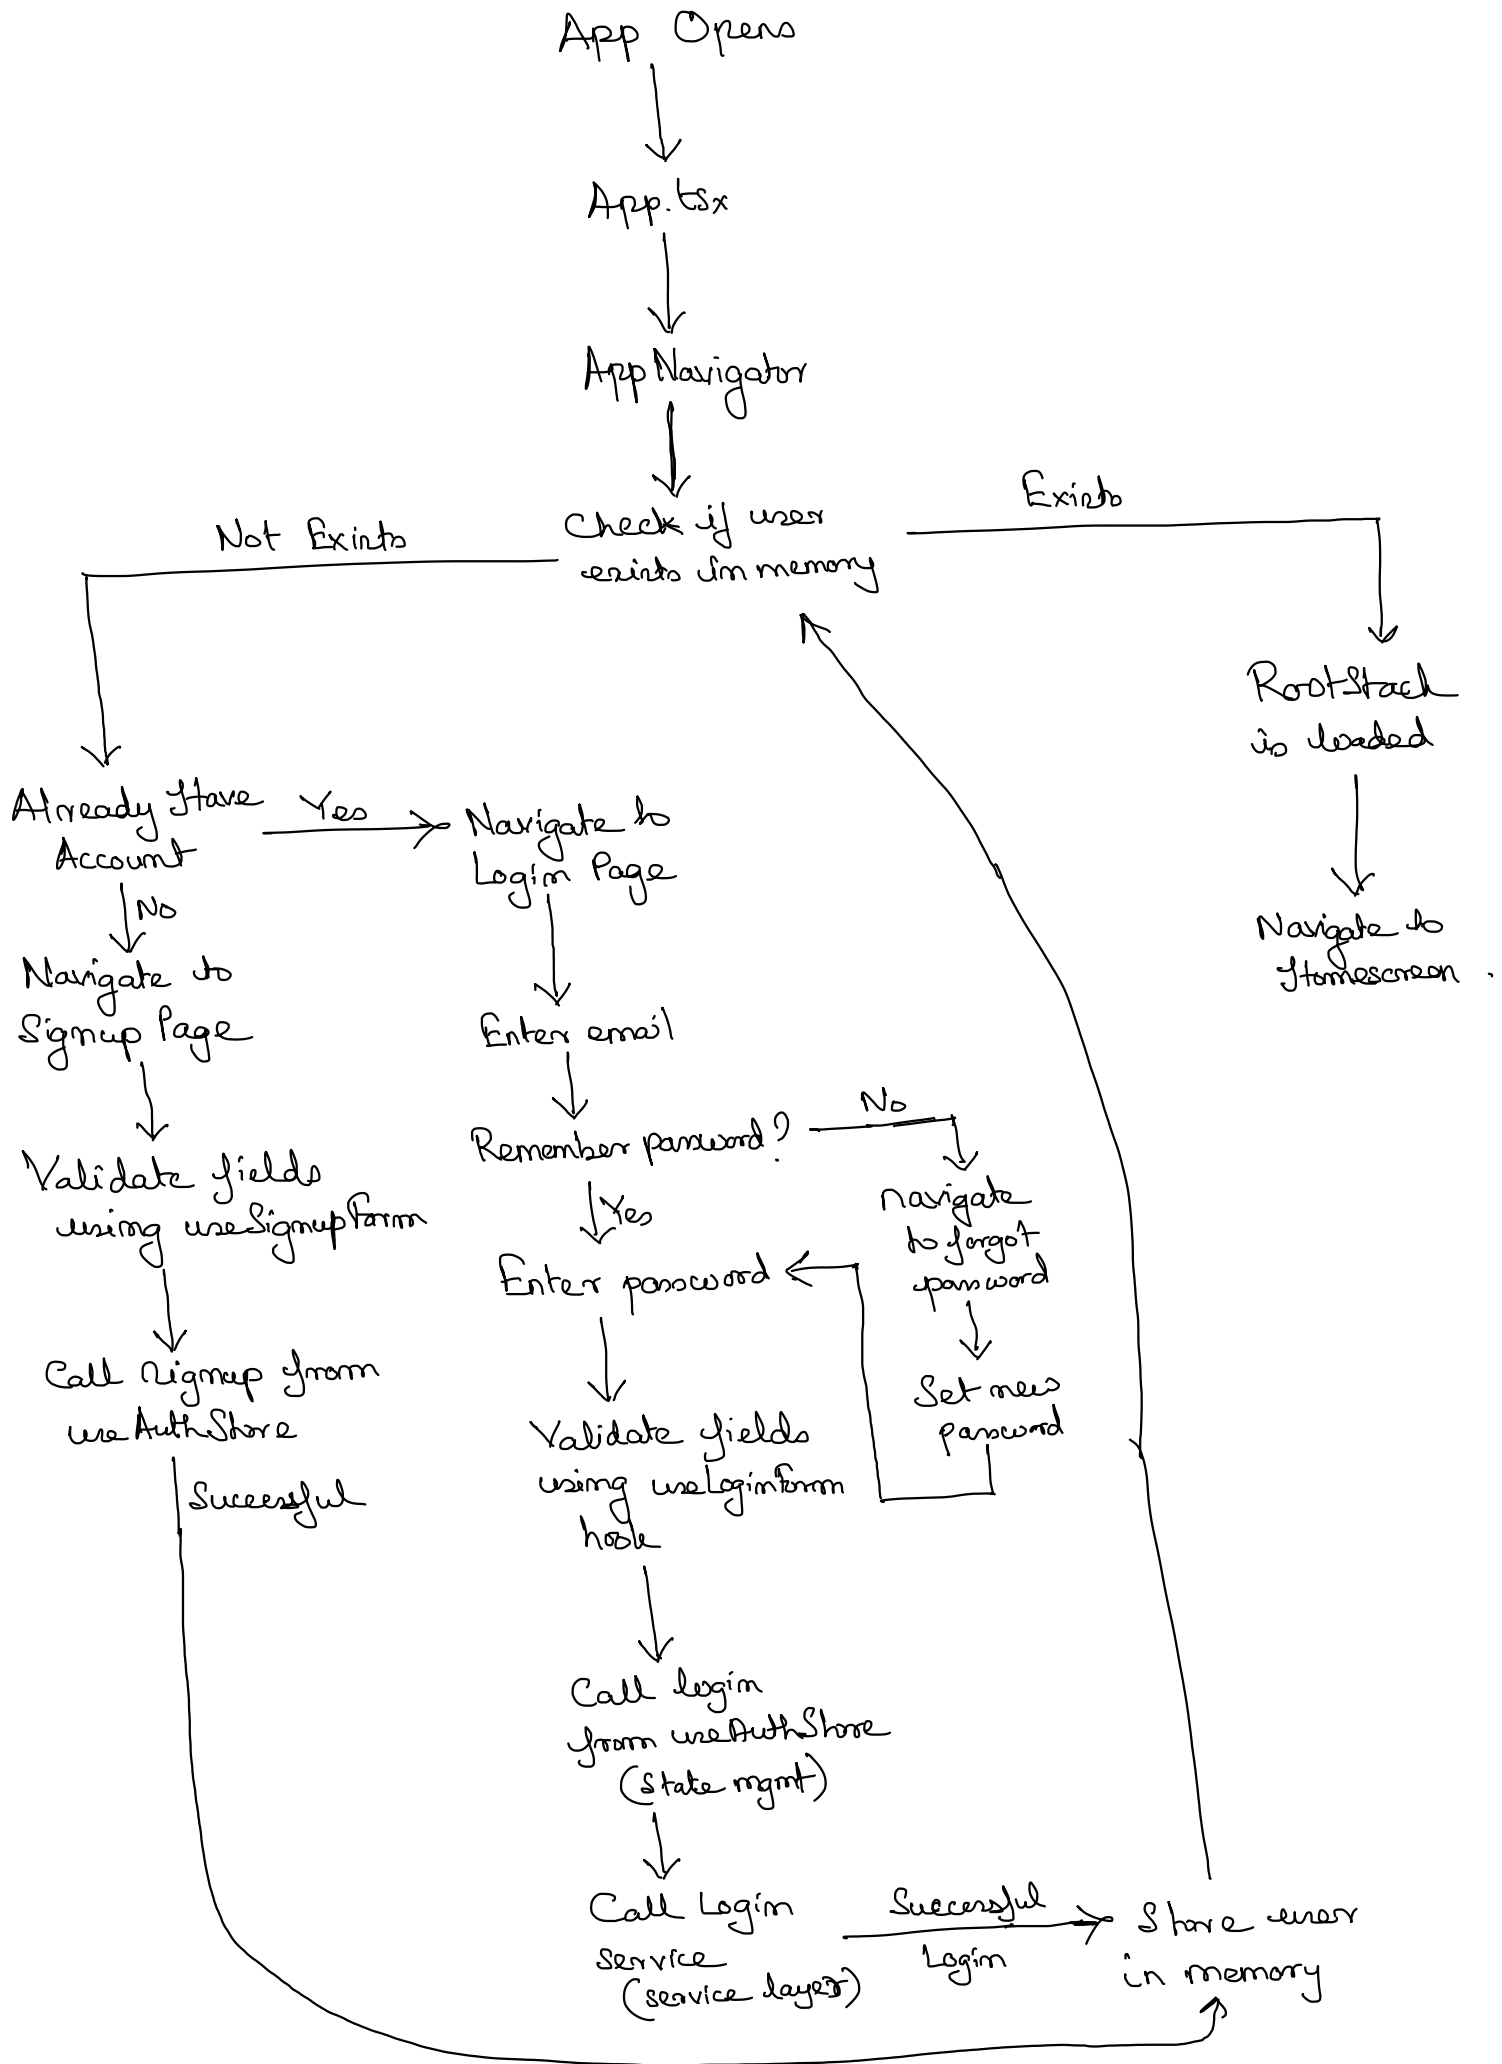 App Opens
App.tsx
AppNavigator
Check if user
exists in memory
Exists
Not Exists
RootStack
is loaded
Navigate to
Homescreen.
Already Have
Account
Yes
No
Navigate to
Signup Page
Validate fields
using useSignupForm
Call signup from
useAuthStore
Successful
Navigate to
Login Page
Enter email
Remember password?
No
Yes
navigate
to forgot
password
Set new
password
Enter password
Validate fields
using useLoginForm
hook
Call login
from useAuthStore
(state mgmt)
Call Login
service
(service layer)
Successful
Login
Store user
in memory